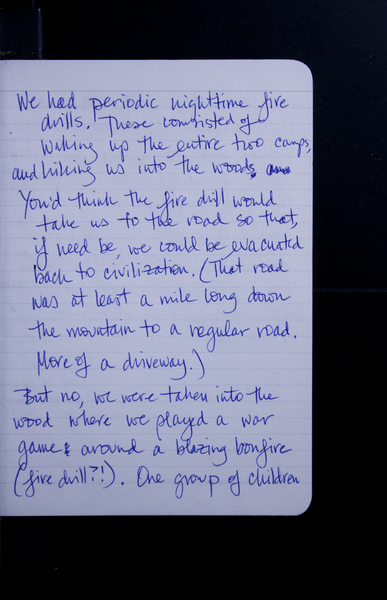 We had periodic nighttime fire
drills. These consisted of
waking up the entire two camps,
and hiking us into the woods,
You'd think the fire drill would
take us to the road so that,
if need be, we could be evacuated
back to civilization. (That road
was at least a mile long down
the mountain to a regular road.
More of a driveway.)
But no, we were taken into the
wood where we played a war
game around a blazing bonfire
(fire drill?!). One group of children